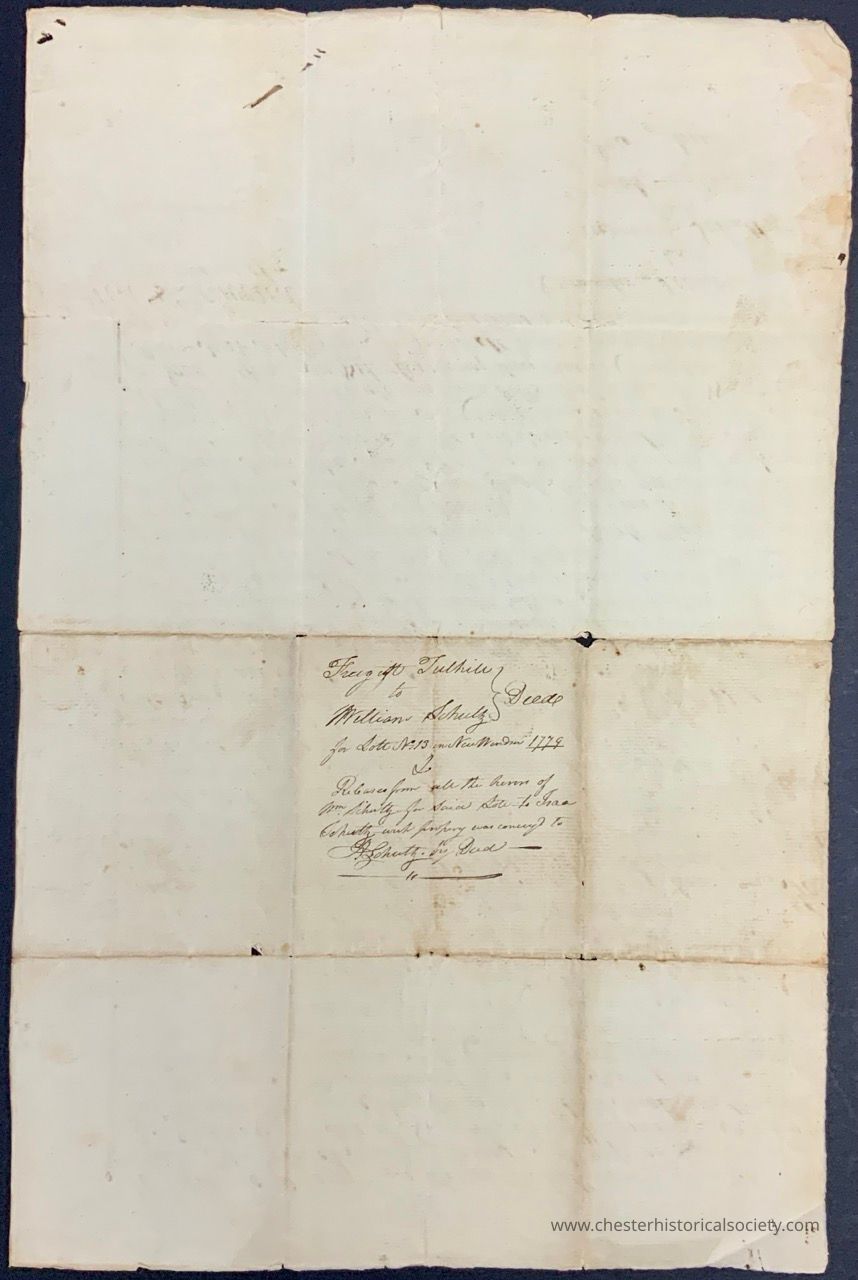 Freegift Tuthill
to
William Schultz } Deed
for Lott No. 13 in New Windsor 1779
&
Releases from all the heirs of
Wm. Schultz for Said Lott to Isaac
Schultz wich was convey'd to
Schultz by Deed
www.chesterhistoricalsociety.com